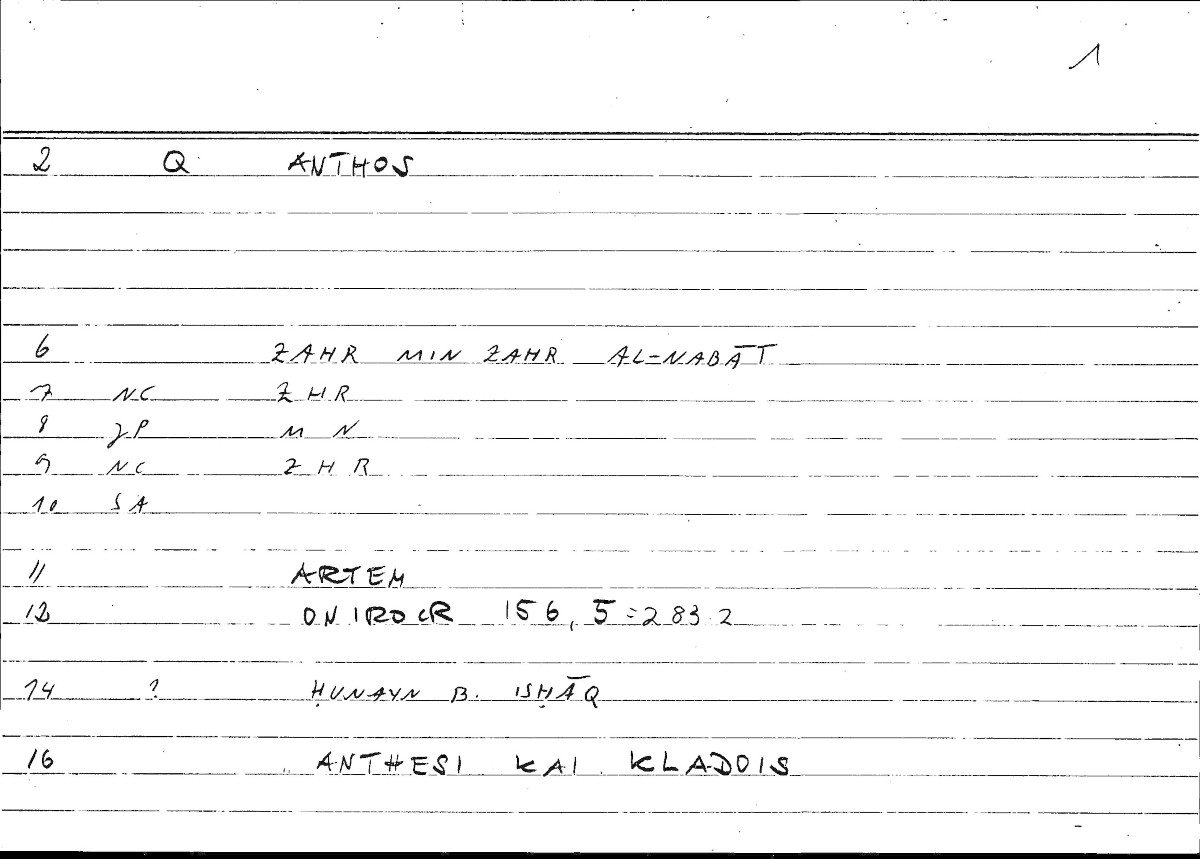 1
2 Q ANTHOS
6 ZAHR MIN ZAHR AL-NABĀT
7 NC ZHR
8 JP M N
9 NC ZHR
10 SA
11 ARTEM
12 ONIROCR 156,5=283.2
14 ? ḤUNAYN B. ISḤĀQ
16 ANTHESI KAI KLADOIS